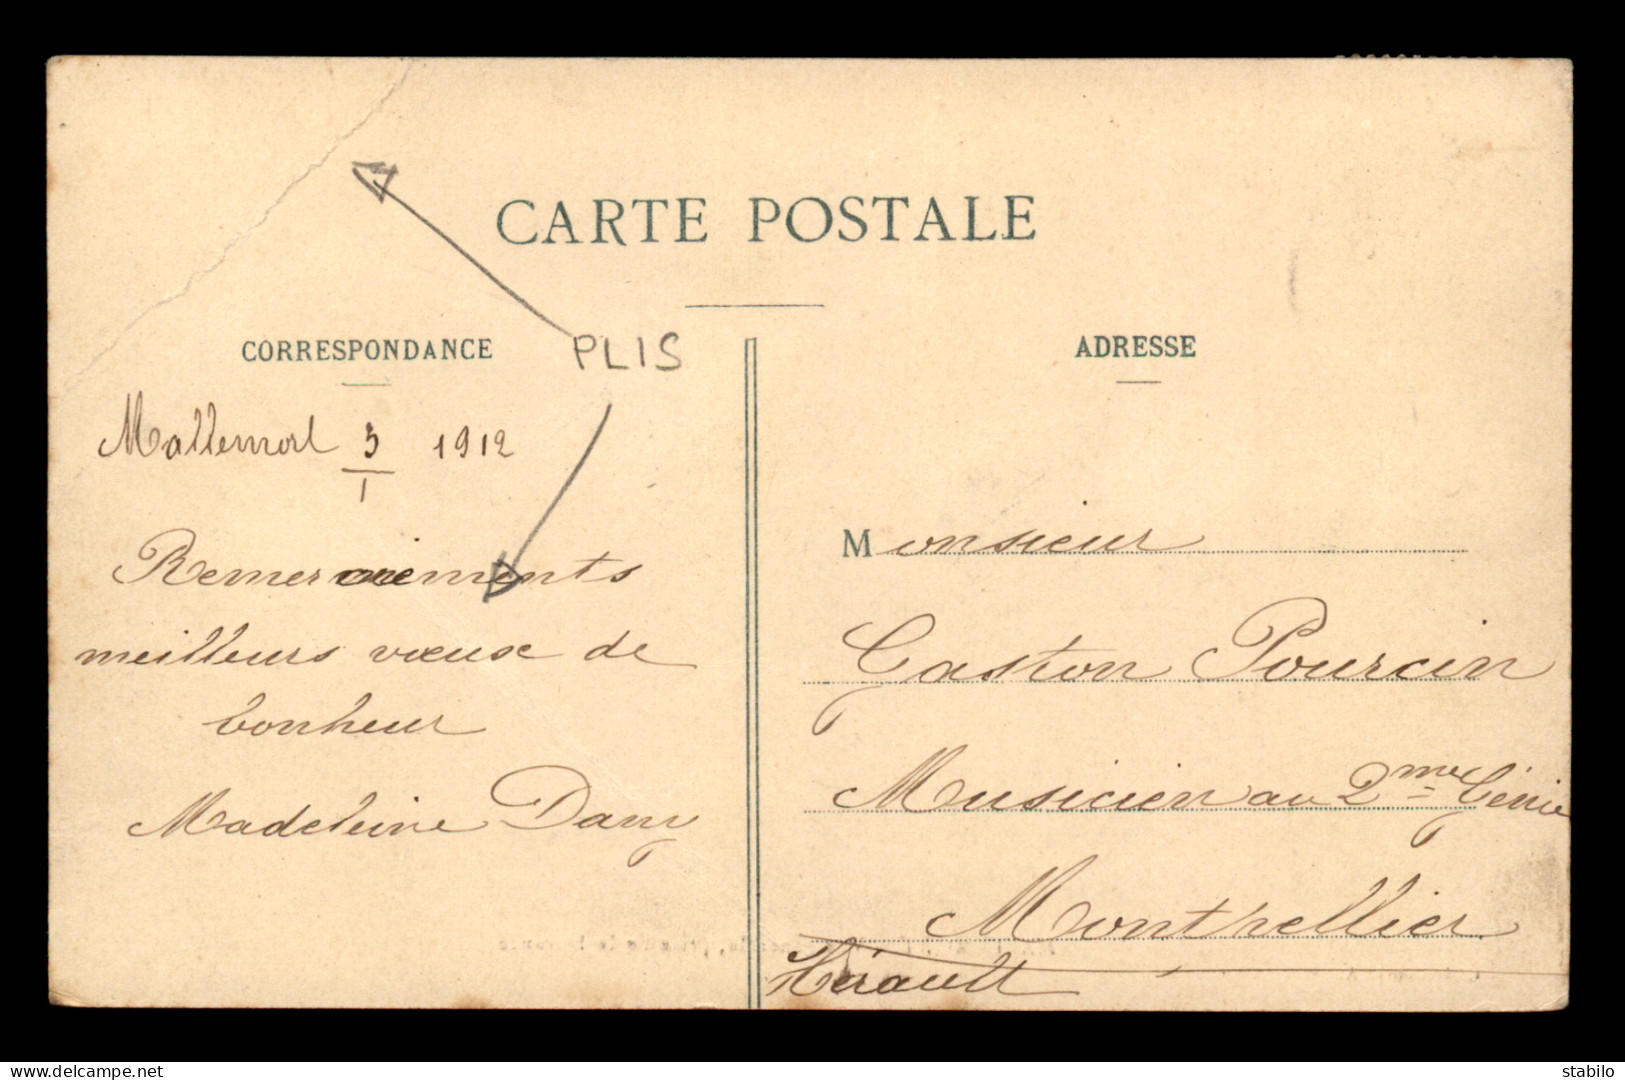 CARTE POSTALE
CORRESPONDANCE
PLIS
ADRESSE
Mallemort 3/1 1912
Remerciements
meilleurs vœux de
bonheur
Madeleine Dany
Monsieur
Gaston Pourcin
Musicien au 2me Génie
Montpellier
Hérault
delcampe.net
stabilo